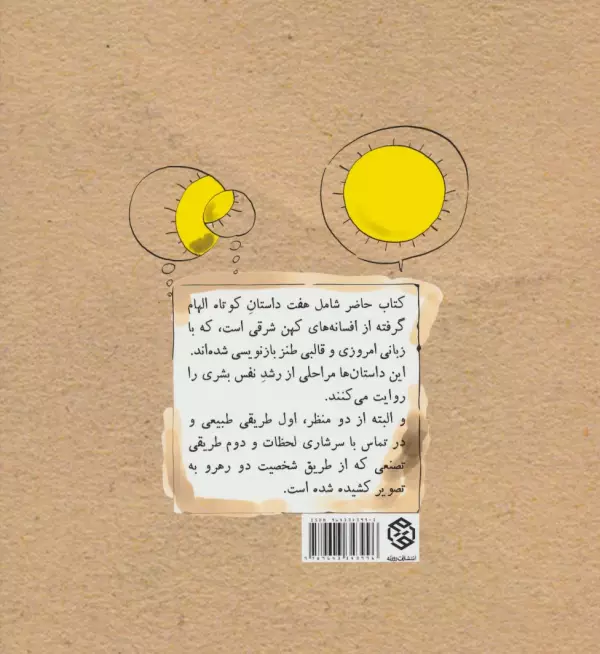 کتاب حاضر شامل هفت داستانِ کوتاه الهام
گرفته از افسانه‌های کهن شرقی است، که با
زبانی امروزی و قالبی طنز بازنویسی شده‌اند.
این داستان‌ها مراحلی از رشدِ نفس بشری را
روایت می‌کنند.
و البته از دو منظر، اول طریقی طبیعی و
در تماس با سرشاری لحظات و دوم طریقی
تصنعی که از طریق شخصیت دو رهرو به
تصویر کشیده شده است.
انتشارات روزنه